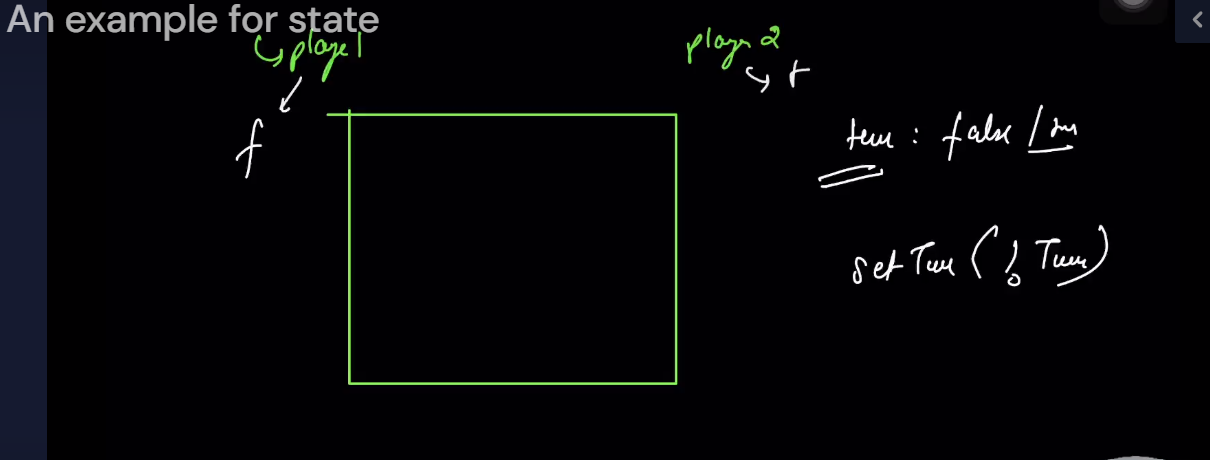 An example for state
player 1
player 2
t
f
turn : false /
set Turn ( ! Turn )